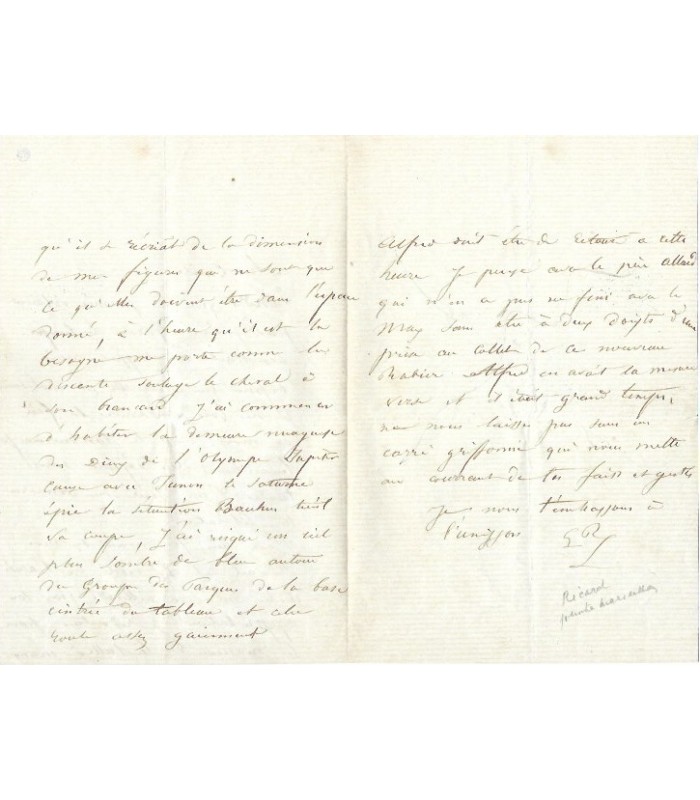 qu'il se récriât de la dimension
de mes figures qui ne sont que
ce qu'elles doivent être dans l'espace
donné, à l'heure qu'il est la
besogne me porte comme la
descente soulage le cheval à
son brancard J'ai commencé
d'habiter la demeure nuageuse
des Dieux de l'Olympe Jupiter
cause avec Junon le Saturne
épie la situation Bacchus tient
sa coupe, J'ai risqué un ciel
plus sombre de bleu autour
du Groupe des Parques de la base
cintrée du tableau et cela
roule assez gaiement
Alfred doit être de retour à cette
heure Je pense avec le père
qui n'en a pas fini avec le
sans être à deux doigts d'une
prise au collet de ce nouveau
Alfred en avait la
verse et il était grand temps,
ne nous laisse pas sans un
carré griffonné qui nous mette
au courant de tes faits et gestes
Je nous t'embrassons à
l'unisson GR
Ricard
peintre marseillais